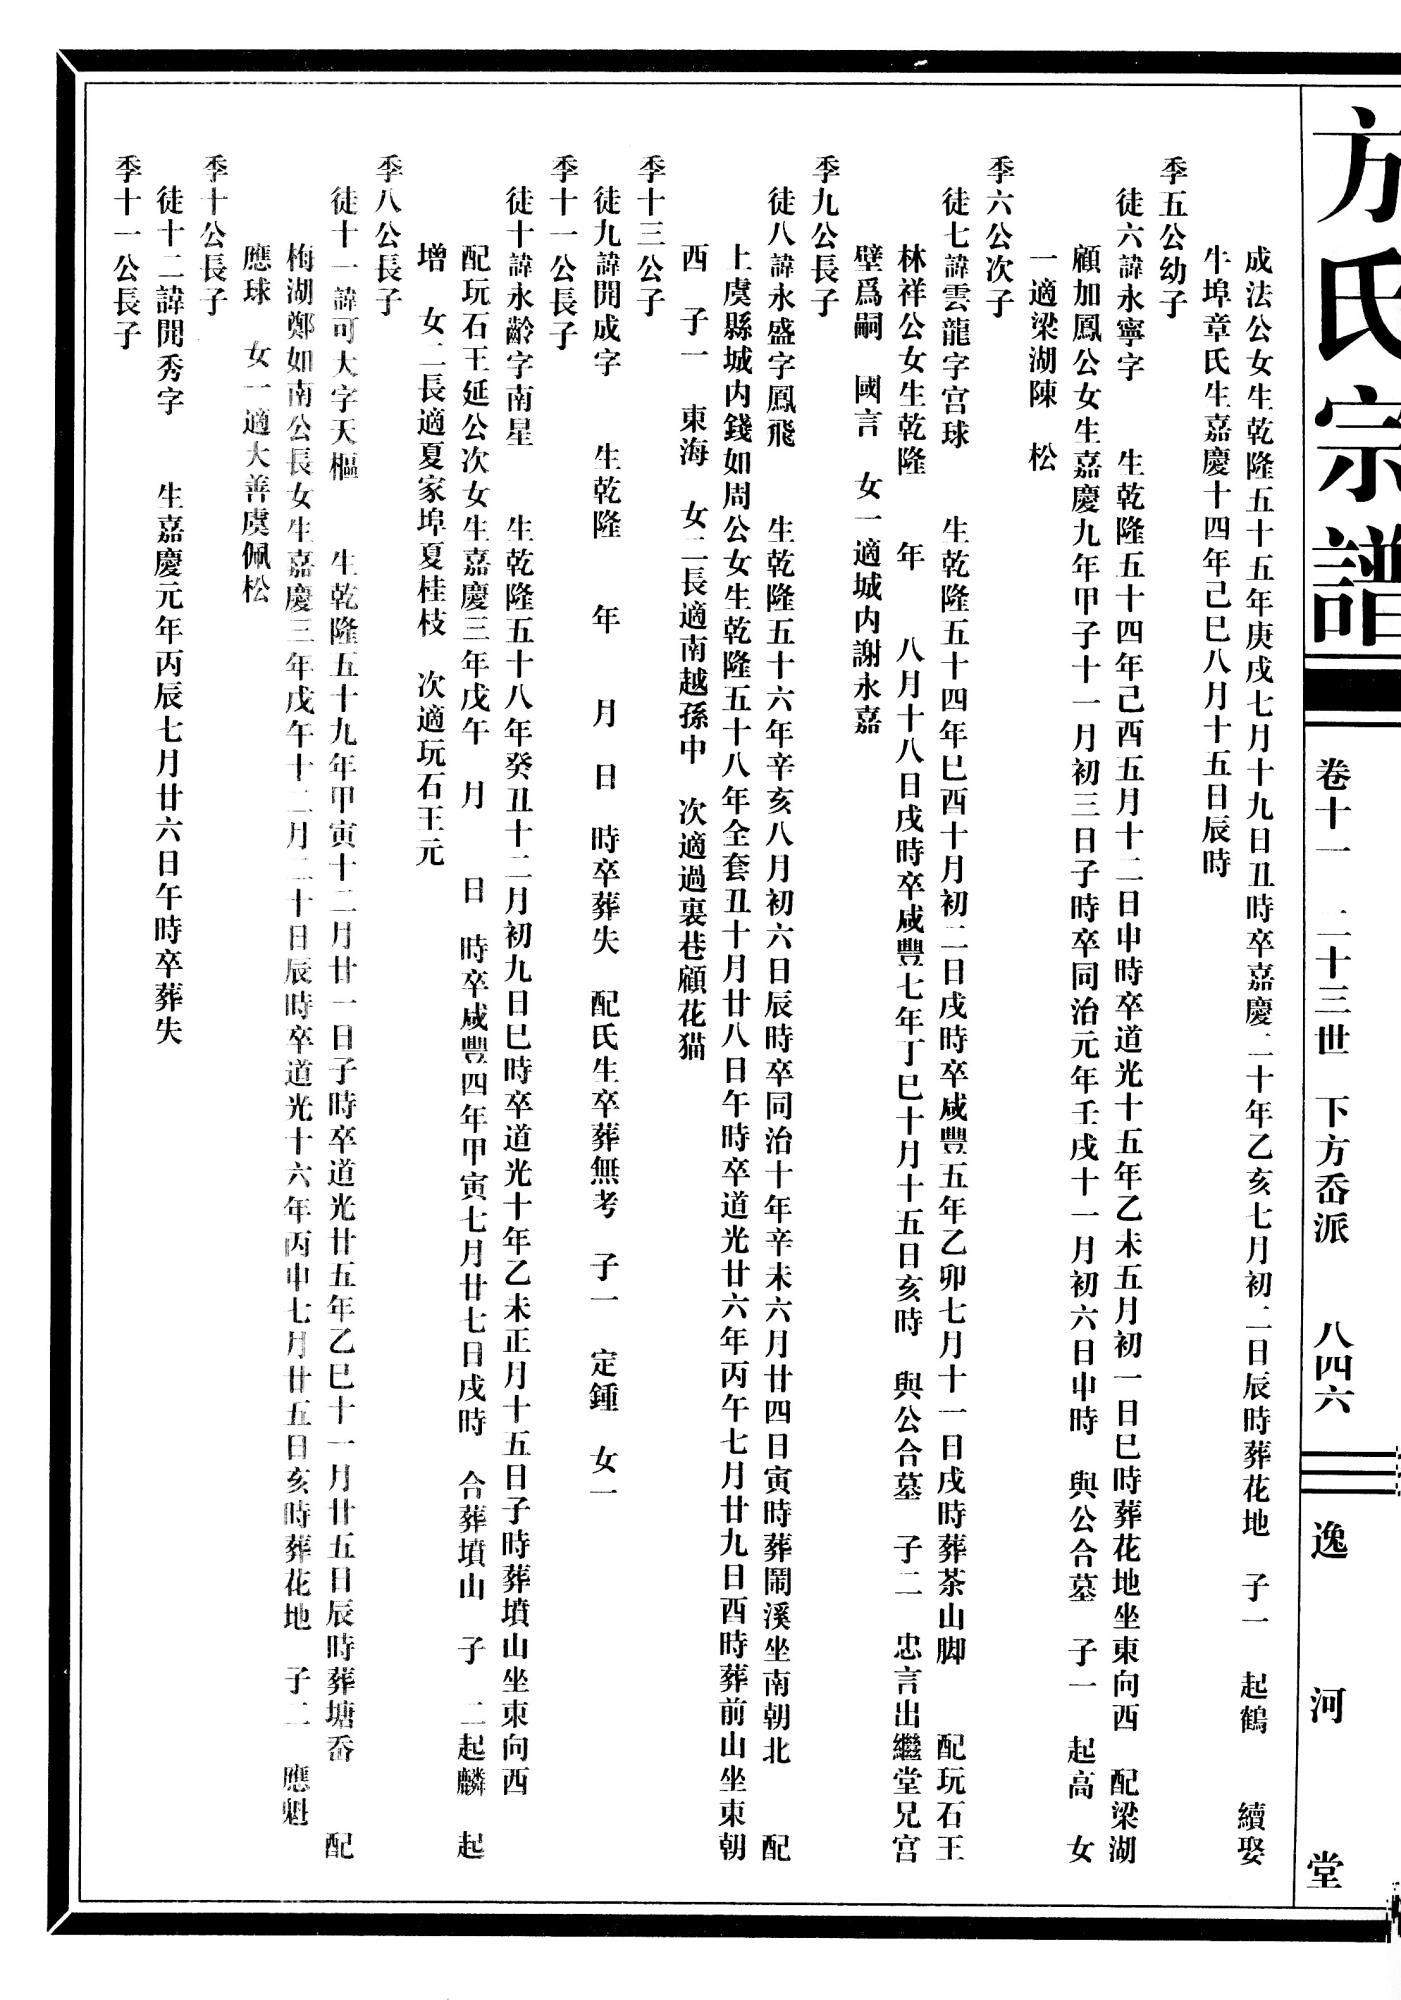 方氏宗譜
卷十一 二十三世 下方岙派 八四六
逸河堂
成法公女生乾隆五十五年庚戌七月十九日丑時卒嘉慶二十年乙亥七月初二日辰時葬花地 子一 起鶴 續娶
牛埠章氏生嘉慶十四年己巳八月十五日辰時
季五公幼子
徒六諱永寧字 生乾隆五十四年己酉五月十二日申時卒道光十五年乙未五月初一日巳時葬花地坐東向西 配梁湖
顧加鳳公女生嘉慶九年甲子十一月初三日子時卒同治元年壬戌十一月初六日申時 與公合墓 子一 起高 女
一適梁湖陳 松
季六公次子
徒七諱雲龍字宫球 生乾隆五十四年巳酉十月初二日戌時卒咸豐五年乙卯七月十一日戌時葬茶山脚 配玩石王
林祥公女生乾隆 年 八月十八日戌時卒咸豐七年丁巳十月十五日亥時 與公合墓 子二 忠言出繼堂兄宫
壁爲嗣 國言 女一適城内謝永嘉
季九公長子
徒八諱永盛字鳳飛 生乾隆五十六年辛亥八月初六日辰時卒同治十年辛未六月廿四日寅時葬鬧溪坐南朝北 配
上虞縣城内錢如周公女生乾隆五十八年全套丑十月廿八日午時卒道光廿六年丙午七月廿九日酉時葬前山坐東朝
西 子一 東海 女二長適南越孫中 次適過裏巷顧花猫
季十三公子
徒九諱開成字 生乾隆 年 月 日 時卒葬失 配氏生卒葬無考 子一 定鍾 女一
季十一公長子
徒十諱永齡字南星 生乾隆五十八年癸丑十二月初九日巳時卒道光十年乙未正月十五日子時葬墳山坐東向西
配玩石王延公次女生嘉慶三年戊午 月 日 時卒咸豐四年甲寅七月廿七日戌時 合葬墳山 子 二起麟 起
增 女二長適夏家埠夏桂枝 次適玩石王元
季八公長子
徒十一諱可大字天樞 生乾隆五十九年甲寅十二月廿一日子時卒道光廿五年乙巳十一月廿五日辰時葬塘岙 配
梅湖鄭如南公長女生嘉慶三年戊午十二月二十日辰時卒道光十六年丙申七月廿五日亥時葬花地 子二 應魁
應球 女一適大善虞佩松
季十公長子
徒十二諱開秀字 生嘉慶元年丙辰七月廿六日午時卒葬失
季十一公長子